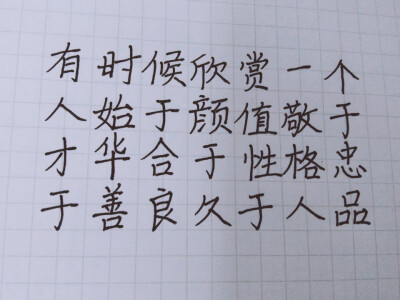 有时候欣赏一个
人始于颜值敬于
才华合于性格忠
于善良久于人品